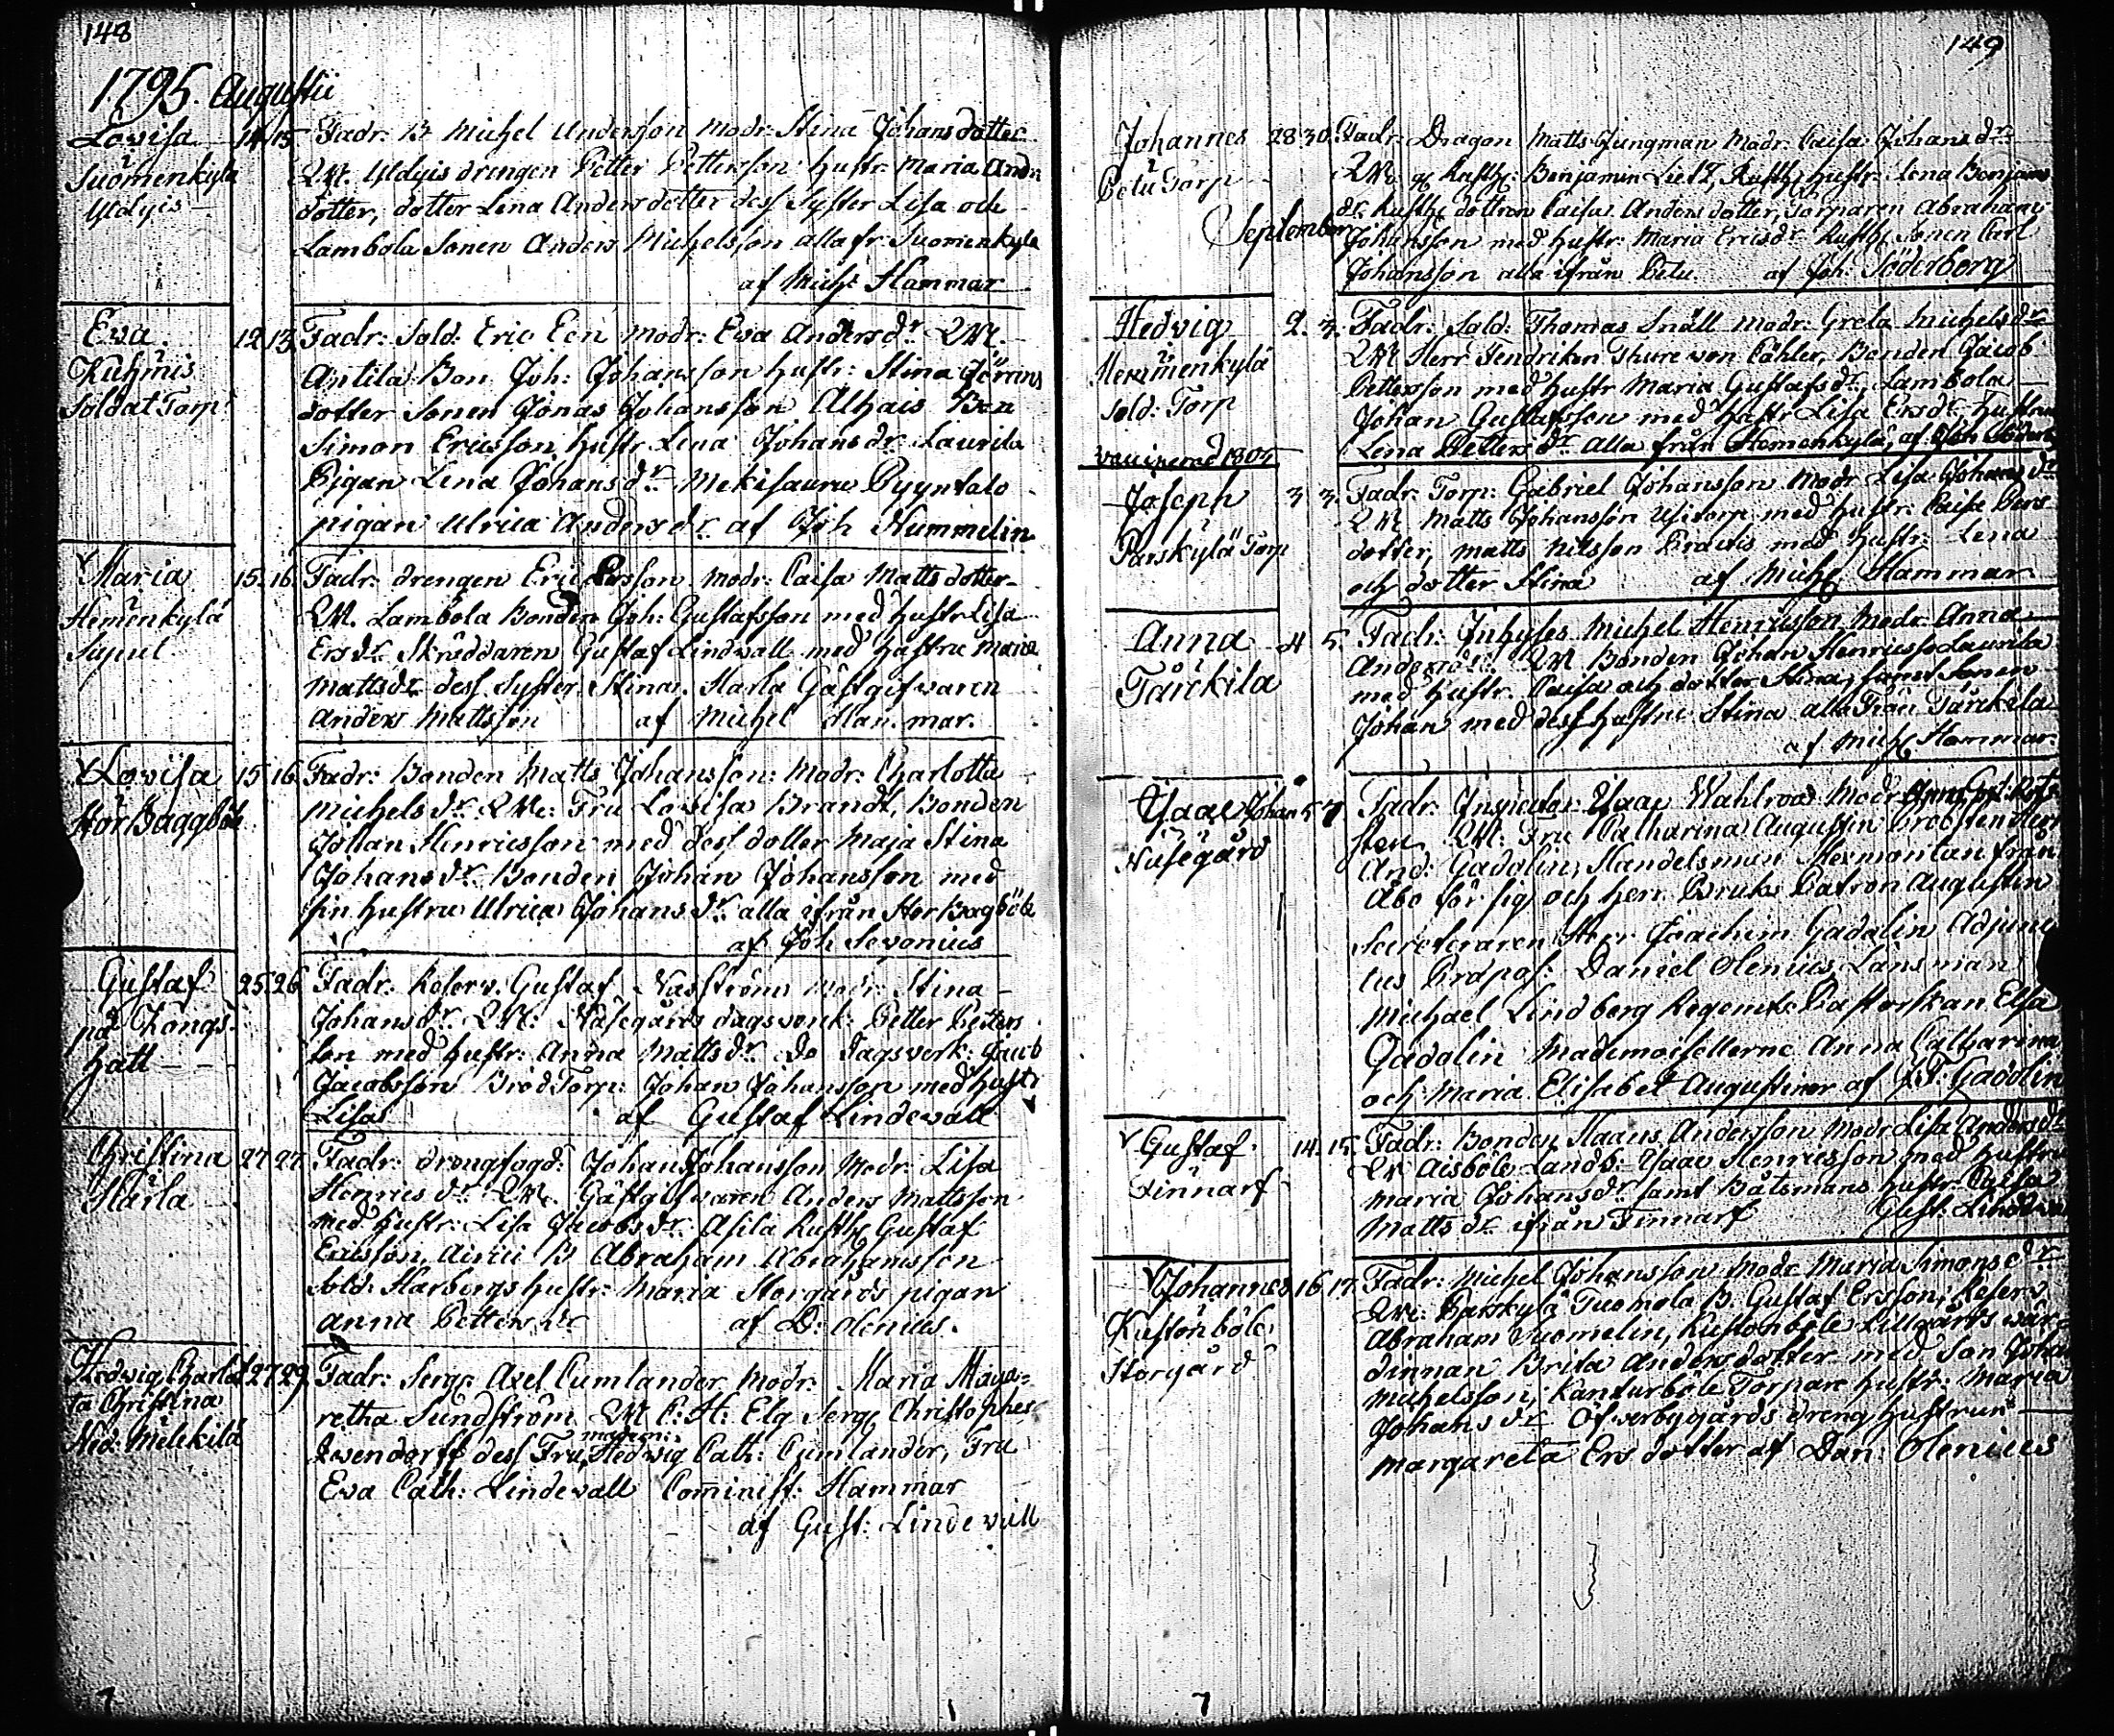 148
1795. Augusti
Lovisa 14 15
Suomenkylä
Yldyis
Fadr: B Michel Andersson Modr: Stina Johansdotter
QM. Yldyis drengen Petter Pettersson hustr: Maria Anders
dotter, dotter Lena Andersdotter dess Syster Lisa och
Lambola Sonen Anders Michelsson alla fr: Suomenkylä
af Mich: Hammar
Eva 12 13
Kuhmis
Soldat Torp
Fadr: Sold: Eric Een Modr: Eva Andersdr QM.
Antila Bon Joh: Johansson hustr: Stina Jörans
dotter Sonen Jonas Johansson Alhais Bon
Simon Ericsson hustr Lena Johansdr Laurila
Pigan Lena Johansdr Mekisauru Pyyntalo
pigan Ulrica Andersdr af Joh Hummelin
Maria 15 16
Hemenkylä
Fadr: drengen Eric Ersson Modr: Caisa Mattsdotter
QM. Lambola Bonden Joh: Gustafsson med hustr Lisa
Ersdr Skräddaren Gustaf Lindvall med hustru Maria
Mattsdr dess Syster Stina. Harla Gästgifvaren
Anders Mattsson af Michel Hammar.
Lovisa 15 16
Stor Baggböle
Fadr: Bonden Matts Johansson: Modr: Charlotta
Michelsdr QM: Fru Lovisa Brandt, Bonden
Johan Henricsson med dess dotter Maja Stina
Johansdr Bonden Johan Johansson med
sin hustru Ulrica Johansdr alla ifrån Stor Bagböle
af Joh Sevonius
Gustaf 25 26
på Kongs
hatt
Fadr: Reserv. Gustaf Nasström Modr: Stina
Johansdr QM: Näsegårds dagsverk: Petter Petters
son med hustr: Anna Mattsdr do dagsverk: Jacob
Jacobsson Bröd Torp: Johan Johansson med hustr
Lisa af Gustaf Lindevall
Christina 27 27
Harla
Fadr: drengfogd: Johan Johansson Modr: Lisa
Henricsdr QM. Gästgifvaren Anders Mattsson
med hustr: Lisa Jacobsdr Asila Rusth: Gustaf
Ericsson, B Abraham Abrahamsson
Sold: Harbergs hustr: Maria Storgårds pigan
Anna Pettersdr af D: Olenius.
Hedvig Charlot 27 29
ta Christina
Ned: Mälekilä
Fadr: Serg: Axel Cumlander Modr: Maria Marga-
retha Sundström QM C: H: Elg Serg: Christopher
Ivendorff dess Fru, mamsell: Hedvig Cath: Cumlander, Fru
Eva Cath: Lindevall Cominist: Hammar
af Gust: Lindevall
149
Johannes 28 30
Petu Torp
Fadr: Dragon Matts Jungman Modr: Caisa Johansdr
QM: Rusth: Benjamin Lietz, Rusth: hustr: Lena Benjams
dr. Rusth: dottren Caisa Andersdotter, Torparen Abraham
Johansson med hustr: Maria Ericsdr Rusth: Sonen Carl
Johansson alla ifrån Petu. af Joh: Söderborg
September
Hedvig 2. 3.
Hemmenkylä
Sold: Torp
vaccinerad 1804
Fadr: Sold: Thomas Snäll Modr: Greta Michelsdr
QM Herr Fendriken Thure von Cahler, Bonden Jacob
Pettersson med hustr Maria Gustafsdr, Lambola
Johan Gustafsson med hustr Lisa Ersdr, hustrun
Lena Pettersdr alla från Hemenkylä, af Joh Söderb
Joseph 3 3.
Parskylä Torp
Fadr: Torp: Gabriel Johansson Modr Lisa Johansdr
QM Matts Johansson Usitorp med hustr: Caisa Pers
dotter, Matts Nilsson med hustr: Lena
och dotter Stina af Mich: Hammar
Anna 4 5.
Tarckila
Fadr: Inhyses Michel Henricsson Modr Anna
Andersdr: QM Bonden Johan Henricsson Laurila
med hustr. Caisa och dotter Stina, samt Sonen
Johan med dess hustru Stina alla från Tarckila
af Mich: Hammar.
Isaac Johan 5 7
Nusegård
Fadr: Inspector Isaac Wahlroos Modr
sten QM: Fru Catharina Augustin Probsten Herr
And: Gadolin, Handelsman från
Åbo för sig och herr Bruks Patron Augustin
Secreteraren Herr Joachim Gadolin Adjunc
tus Daniel Olenius, Länsman
Michael Lindberg Regemts: Pastorskan Elsa
Gadolin Mademoisellerne Anna Catharina
och Maria Elisabet Augustiner af J. F: Gadolin
Gustaf 14. 15.
Finnarf
Fadr: Bonden Staans Andersson Modr Lisa Andersdr
QM Aisböle Landb: Isaac Henricsson med hustru
Maria Johansdr samt Båtsmans hustr: Caisa
Mattsdr ifrån Finnarf Gust: Lindevall
Johannes 16 17
Kustonböle
Storgård
Fadr: Michel Johansson Modr Maria Simonsdr
QM: Parskylä Tuomola B. Gustaf Ersson, Reserv
Abraham Suomelin, Kustonböle Lillgårds vär-
dinnan Brita Andersdotter med Son Johan
Michelsson, Kanturböle Torpare hustr: Maria
Johansdr Öfverbygårds dreng hustrun
Margareta Ersdotter af Dan: Olenius